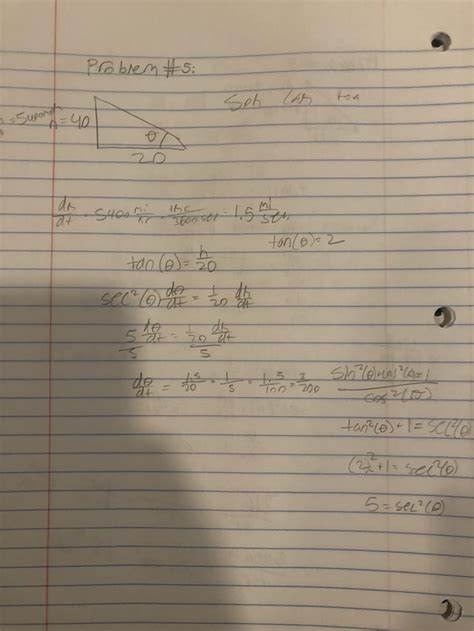 Problem #5:
Soh Cah toa
h = 40
θ
20
dh/dt = 5400 mi/hr · 1hr/3600sec = 1.5 mi/sec
tan(θ)=2
tan(θ) = h/20
sec²(θ) dθ/dt = 1/20 dh/dt
5 dθ/dt / 5 = 1/20 dh/dt / 5
dθ/dt = 1.5/20 · 1/5 = 1.5/100 = 3/200
tan²(θ)+1 = sec²(θ)
(2)²+1 = sec²(θ)
5 = sec²(θ)